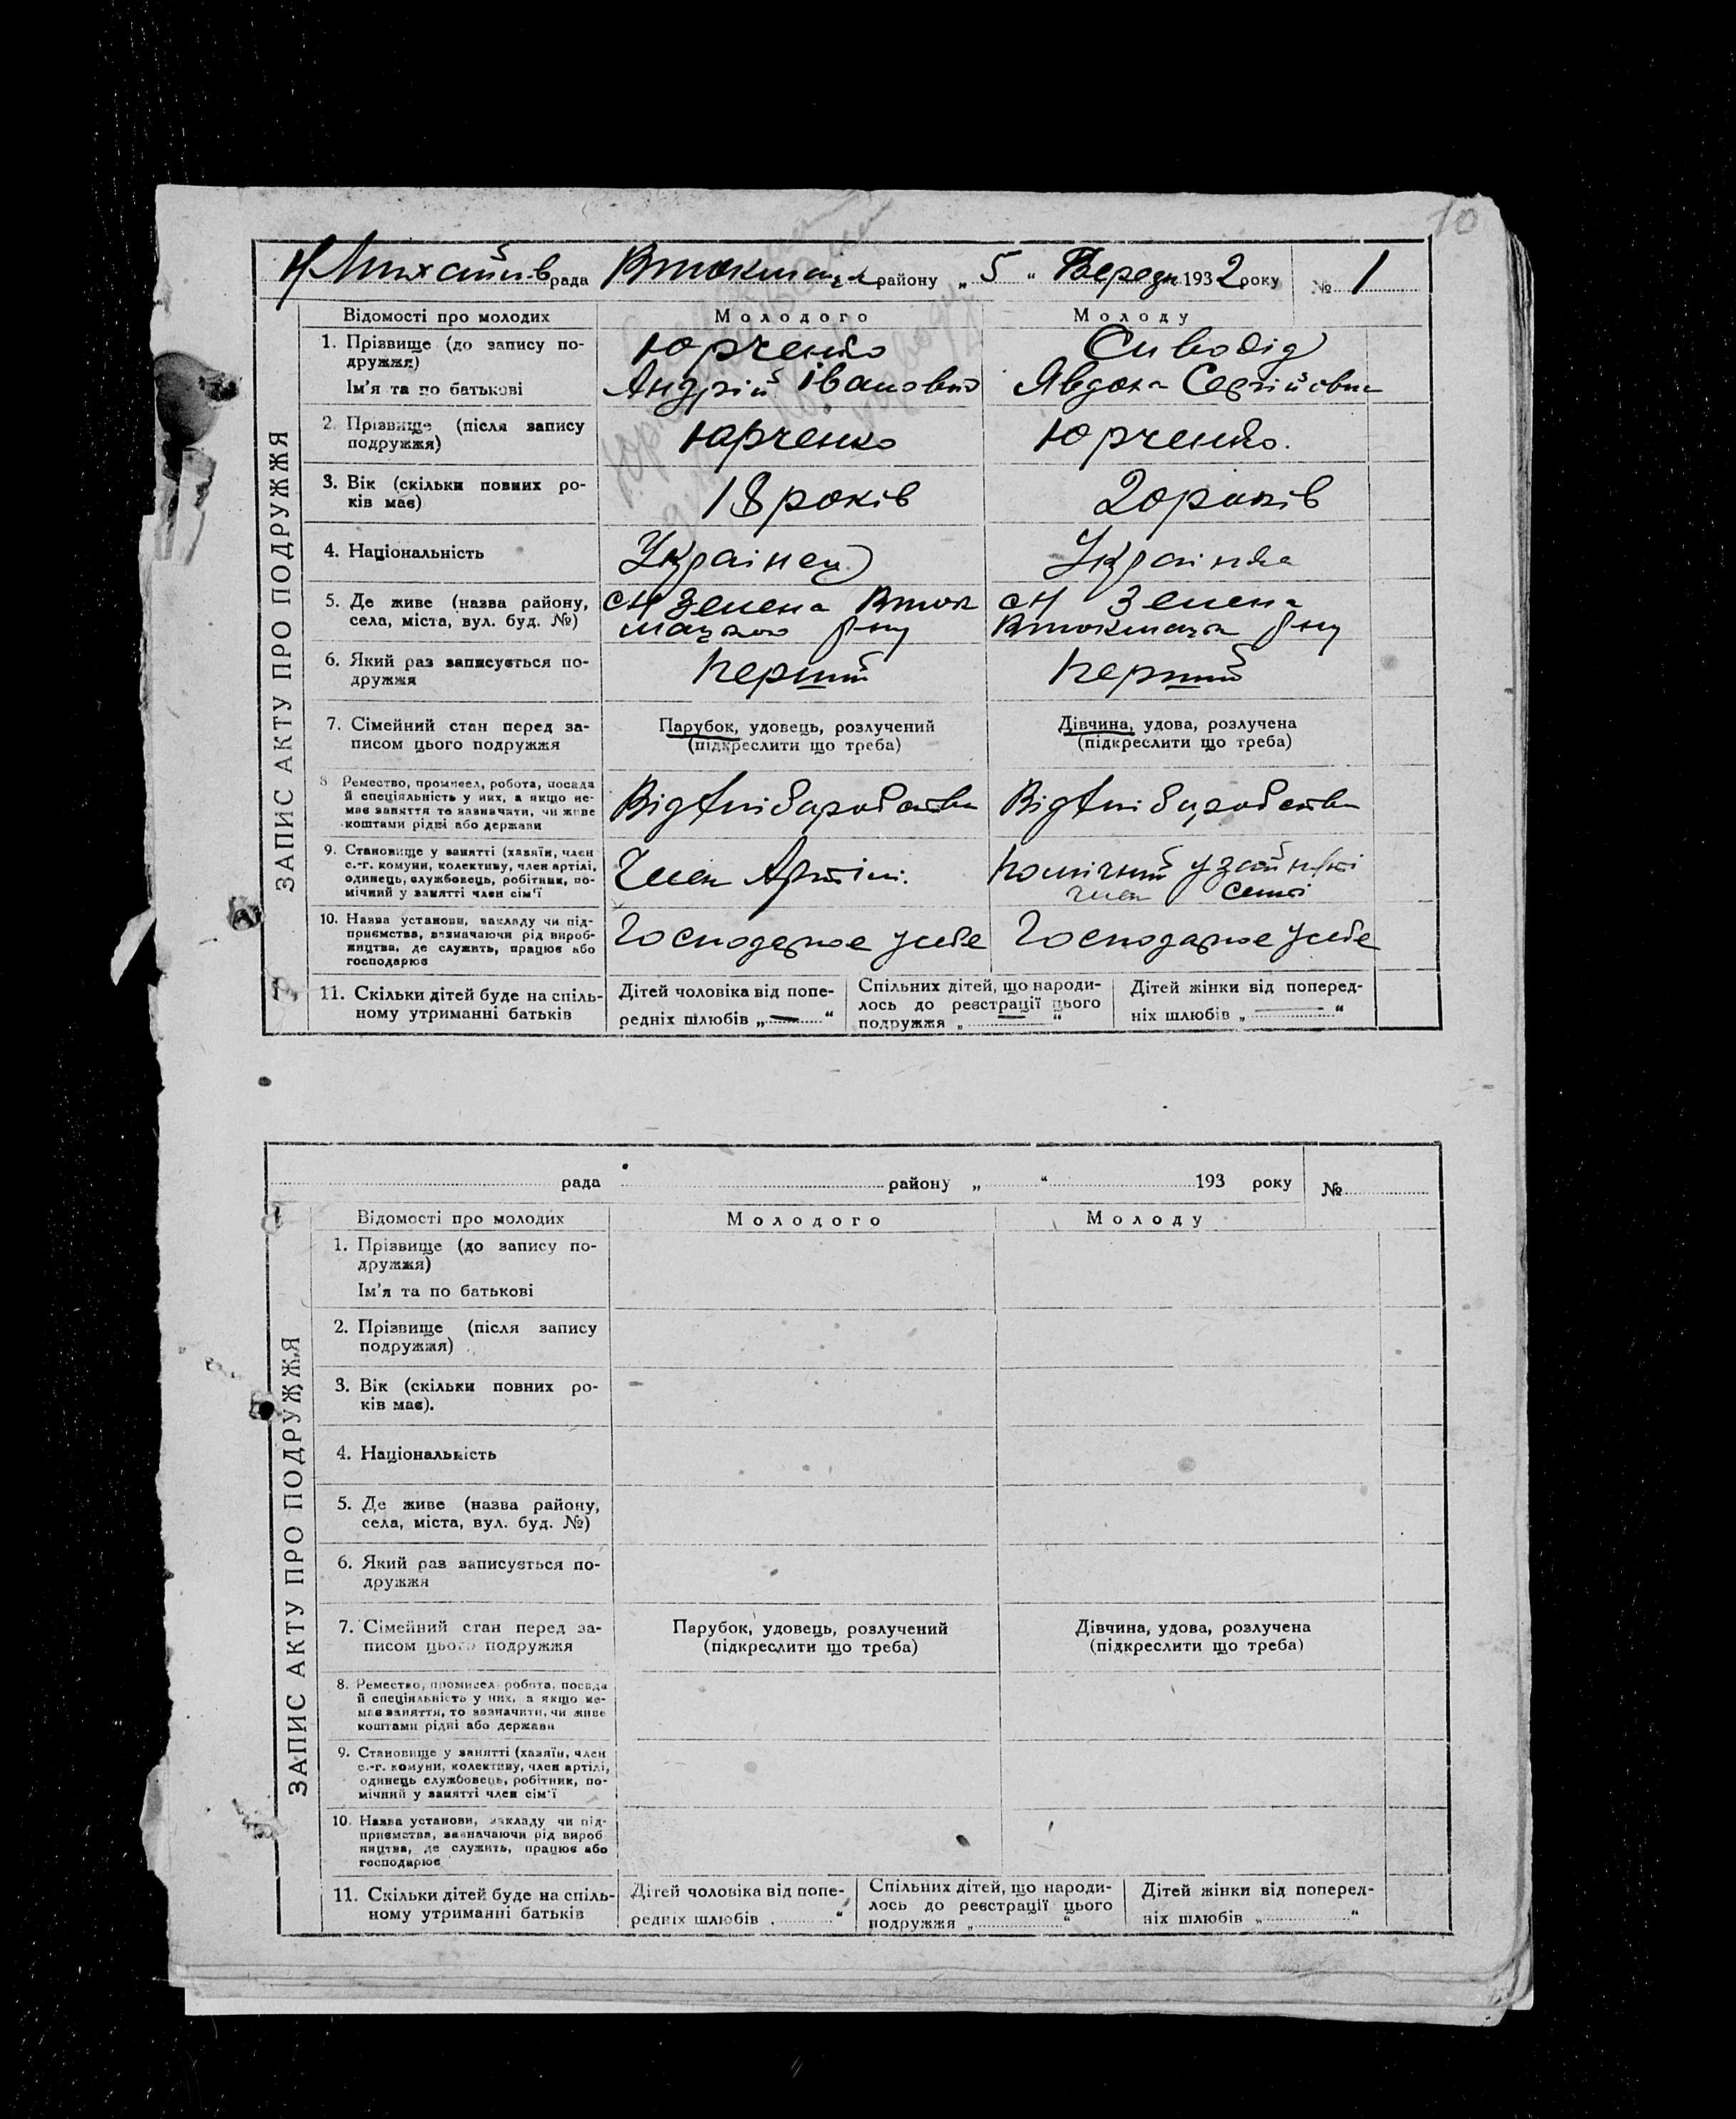 10
Н Михайлів рада Втокмацьк району „ 5 “ Березн 1932 року № 1
ЗАПИС АКТУ ПРО ПОДРУЖЖЯ
Відомості про молодих Молодого Молоду
1. Прізвище (до запису по-
дружжя) Юрченко
Ім'я та по батькові Андрій Іванович Явдоха Сергійовна
2. Прізвище (після запису
подружжя) Юрченко Юрченко.
3. Вік (скільки повних ро-
ків має) 18 років 20 років
4. Національність Українец Українка
5. Де живе (назва району,
села, міста, вул. буд. №) сН Зелена Вток
мацького р-ну сН Зелена
Втокмацьк р-ну
6. Який раз записується по-
дружжя Перший Перший
7. Сімейний стан перед за-
писом цього подружжя Парубок, удовець, розлучений
(підкреслити що треба) Дівчина, удова, розлучена
(підкреслити що треба)
8 Ремество, промисел, робота, посада
й спеціяльність у них, а якщо не-
має заняття то зазначити, чи живе
коштами рідні або держави
9. Становище у занятті (хазяїн, член
с.-г. комуни, колективу, член артілі,
одинець, службовець, робітник, по-
мічний у занятті член сім'ї Член Артілі. Помічний у занятті
член семї
10. Назва установи, закладу чи під-
приємства, зазначаючи рід вироб-
ництва, де служить, працює або
господарює Господарює у себе Господарює у себе
11. Скільки дітей буде на спіль-
ному утриманні батьків Дітей чоловіка від попе-
редніх шлюбів „ — “ Спільних дітей, що народи-
лось до реєстрації цього
подружжя „ — “ Дітей жінки від поперед-
ніх шлюбів „ — “
рада району „ “ 193 року №
ЗАПИС АКТУ ПРО ПОДРУЖЖЯ
Відомості про молодих Молодого Молоду
1. Прізвище (до запису по-
дружжя)
Ім'я та по батькові
2. Прізвище (після запису
подружжя)
3. Вік (скільки повних ро-
ків має).
4. Національність
5. Де живе (назва району,
села, міста, вул. буд. №)
6. Який раз записується по-
дружжя
7. Сімейний стан перед за-
писом цього подружжя Парубок, удовець, розлучений
(підкреслити що треба) Дівчина, удова, розлучена
(підкреслити що треба)
8. Ремество, промисел робота, посада
й спеціяльність у них, а якщо не-
має заняття, то зазначити, чи живе
коштами рідні або держави
9. Становище у занятті (хазяїн, член
с.-г. комуни, колективу, член артілі,
одинець службовець, робітник, по-
мічний у занятті член сім'ї
10. Назва установи, закладу чи під-
приємства, зазначаючи рід вироб
ництва, де служить, працює або
господарює
11. Скільки дітей буде на спіль-
ному утриманні батьків Дітей чоловіка від попе-
редніх шлюбів „ “ Спільних дітей, що народи-
лось до реєстрації цього
подружжя „ “ Дітей жінки від поперед-
ніх шлюбів „ “